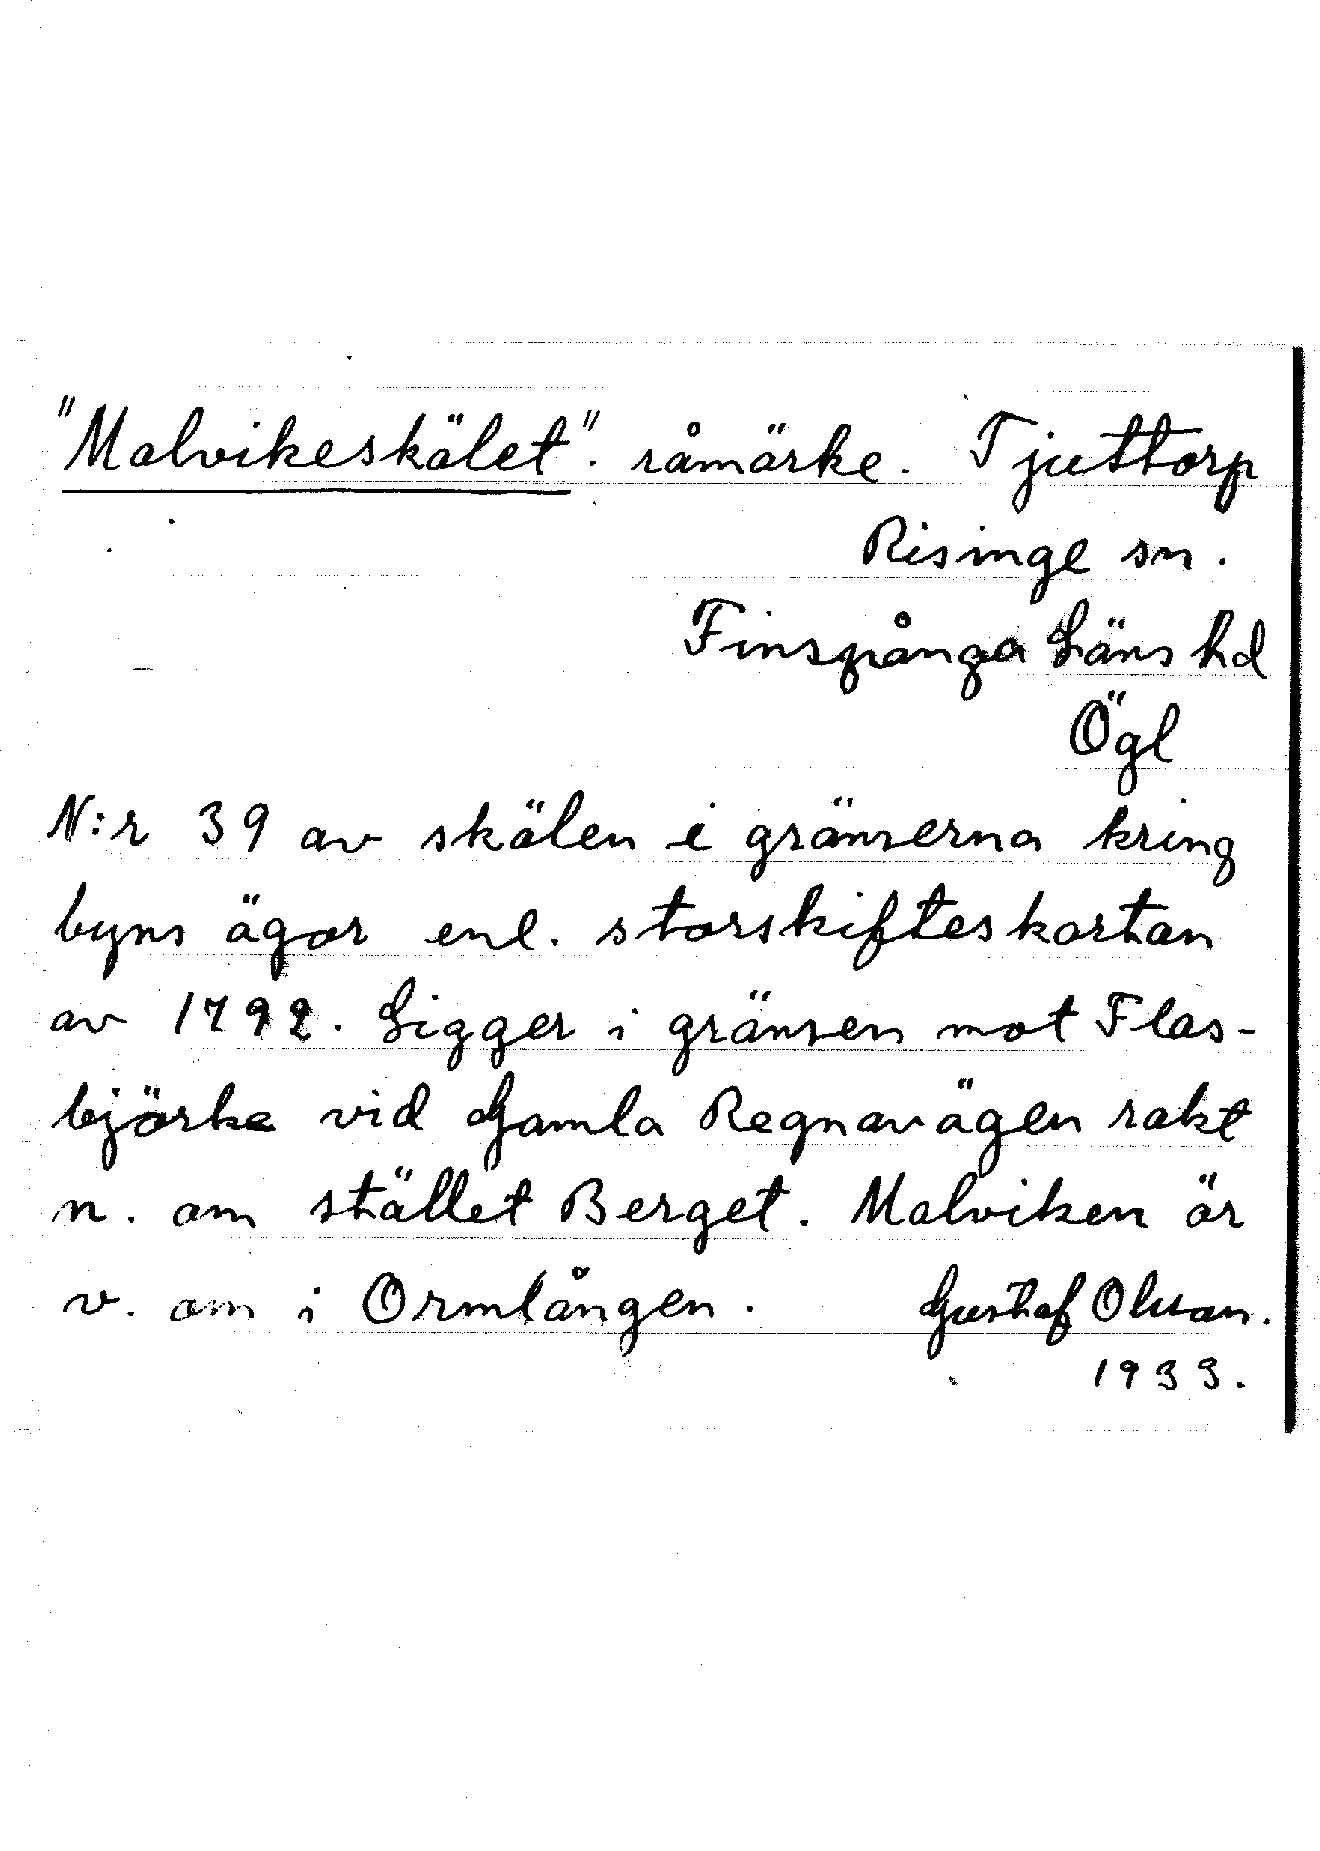 "Malvikeskälet". råmärke. Tjuttorp
Risinge sn.
Finspånga Läns hd
Ögl
N:r 39 av skälen i gränserna kring
byns ägor enl. storskifteskartan
av 1792. Ligger i gränsen mot Flas-
björke vid Gamla Regnavägen rakt
n. om stället Berget. Malviken är
v. om i Ormlången. Gustaf Olsson.
1933.